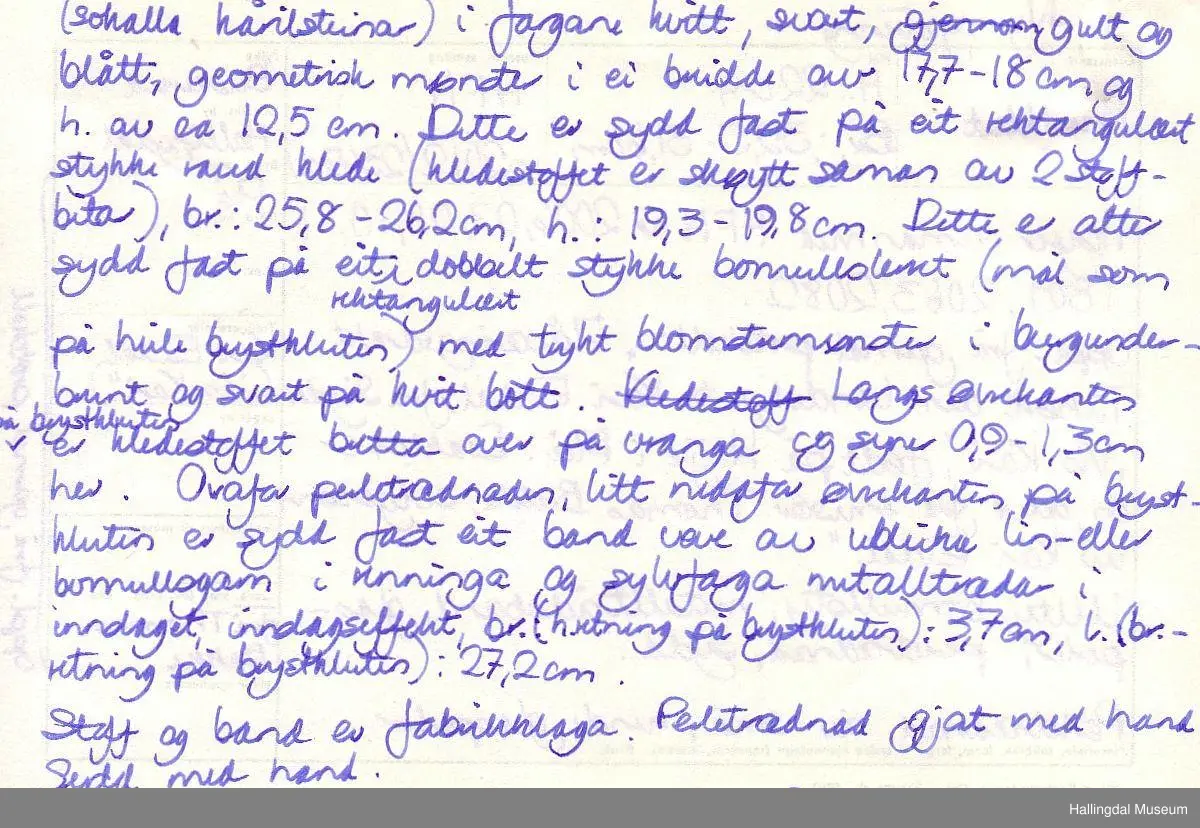 (sokalla hårilsteinar) i fargane kvitt, svart, gjennom gult og
blått, geometrisk mønster i ei breidde av 17,7-18 cm og
h. av ca 12,5 cm. Dette er sydd fast på eit rektangulært
stykke raud klede (kledestoffet er skøytt saman av 2 stoff-
bitar), br.: 25,8-26,2cm, h.: 19,3-19,8cm. Dette er atter
sydd fast på eit dobbelt stykke bomullslerret (mål som
rektangulært
på heile brystkluten) med trykt blomstermønster i burgunder-
brunt og svart på kvit bott. Kledestoff Langs øvrekanten
på brystkluten
er kledestoffet bretta over på vranga og syner 0,9-1,3cm
her. Ovafor perletrædnaden, litt nedafor øvrekanten på bryst-
kluten er sydd fast eit band vove av ubleika lin- eller
bomullsgarn i renninga og sylvfarga metalltrædar i
inndaget, inndagseffekt, br. (h.retning på brystkluten): 3,7cm, l. (br.-
retning på brystkluten): 27,2cm.
Stoff og band er fabrikklaga. Perletrædnad gjort med hand
Sydd med hand.
Hallingdal Museum